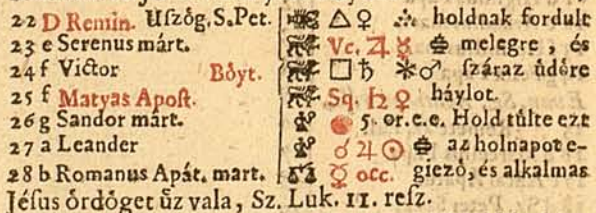 22 D Remin. Uſzóg. S. Pet. △ ♀ holdnak fordult
23 e Serenus márt. Vc. ♃ ☿ melegre, és
24 f Victor Bőyt. □ ♄ ⚹ ♂ ſzáraz üdőre
25 f Matyas Apoſt. Sq. ♄ ♀ háylot.
26 g Sandor márt. 5. or. e. e. Hold tůlte ezt
27 a Leander ☌ ♃ ☉ az holnapot e-
28 b Romanus Apát. mart. ☿ occ. giező, és alkalmas
Jéſus ördöget űz vala, Sz. Luk. 11. reſz.